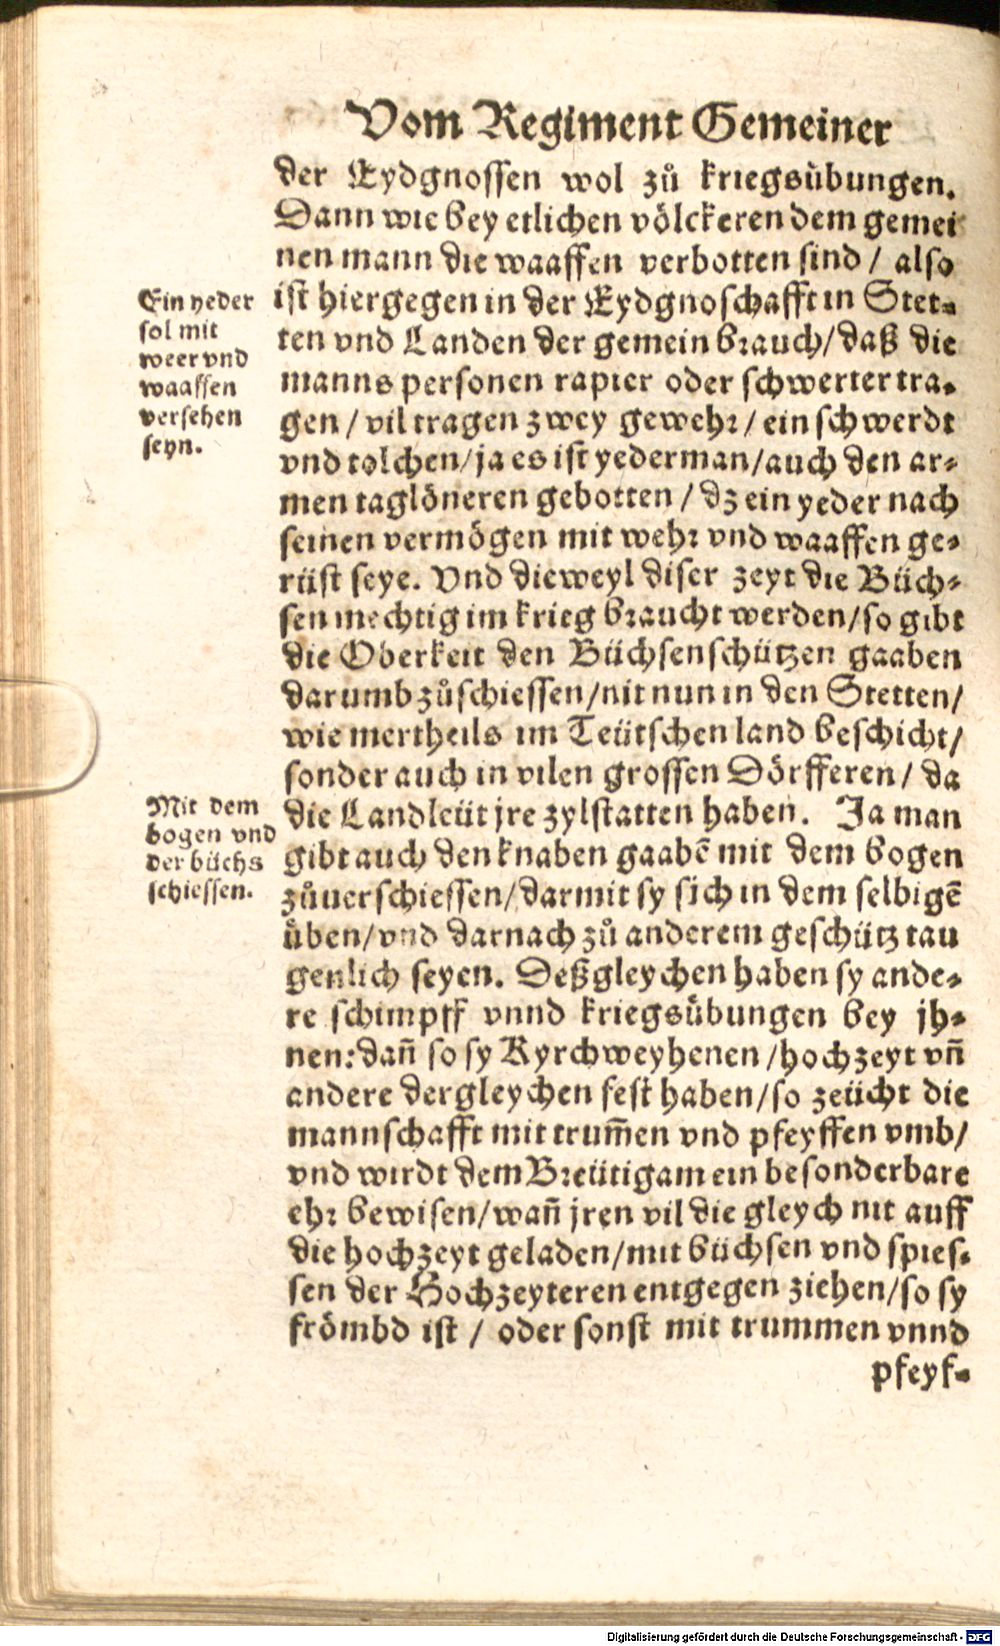 Vom Regiment Gemeiner
der Eydgnossen wol zů kriegsübungen.
Dann wie bey etlichen völckeren dem gemei
nen mann die waaffen verbotten sind / also
ist hiergegen in der Eydgnoschafft in Stet-
ten vnd Landen der gemein brauch/daß die
manns personen rapier oder schwerter tra-
gen / vil tragen zwey gewehr / ein schwerdt
vnd tolchen/ja es ist yederman/auch den ar-
men taglöneren gebotten / dz ein yeder nach
seinen vermögen mit wehr vnd waaffen ge-
rüst seye. Vnd dieweyl diser zeyt die Büch-
sen mechtig im krieg braucht werden/so gibt
die Oberkeit den Büchsenschützen gaaben
darumb zůschiessen/nit nun in den Stetten/
wie mertheils im Teütschen land beschicht/
sonder auch in vilen grossen Dörfferen / da
die Landleüt jre zylstatten haben. Ja man
gibt auch den knaben gaabē mit dem bogen
zůuerschiessen/darmit sy sich in dem selbigē
üben/vnd darnach zů anderem geschütz tau
genlich seyen. Deßgleychen haben sy ande-
re schimpff vnnd kriegsübungen bey jh-
nen: dañ so sy Kyrchweyhenen /hochzeyt vñ
andere dergleychen fest haben/so zeücht die
mannschafft mit trum̃en vnd pfeyffen vmb/
vnd wirdt dem Breütigam ein besonderbare
ehr bewisen/wañ jren vil die gleych nit auff
die hochzeyt geladen/mit büchsen vnd spies-
sen der Hochzeyteren entgegen ziehen/so sy
frömbd ist / oder sonst mit trummen vnnd
pfeyf-
Ein yeder
sol mit
weer vnd
waaffen
versehen
seyn.
Mit dem
bogen vnd
der büchs
schiessen.
Digitalisierung gefördert durch die Deutsche Forschungsgemeinschaft - DFG